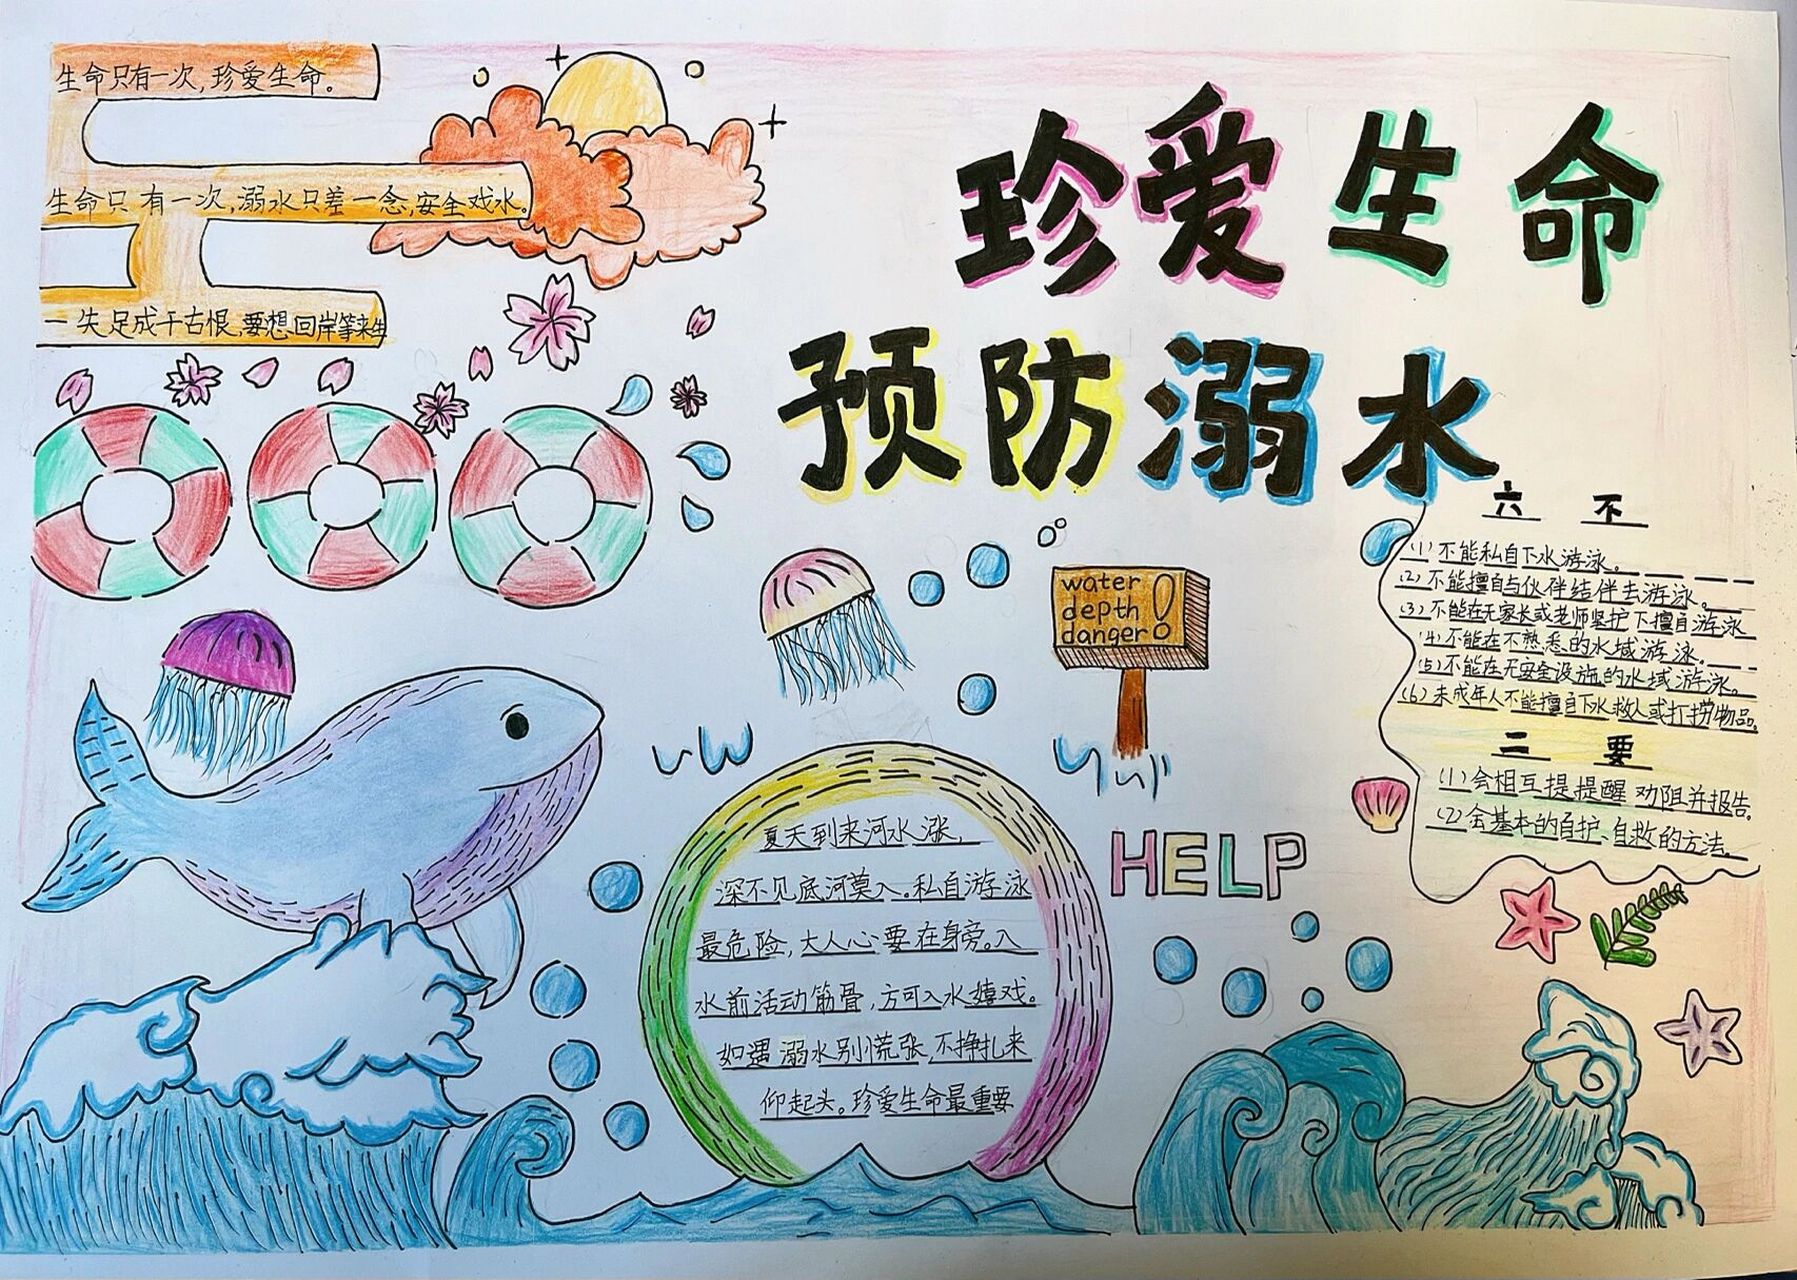 生命只有一次,珍爱生命。
生命只有一次,溺水只差一念,安全戏水。
一失足成千古恨,要想回岸等来生
珍爱生命
预防溺水
water
depth
danger!
六不
(1)不能私自下水游泳。
(2)不能擅自与伙伴结伴去游泳。
(3)不能在无家长或老师坚护下擅自游泳
(4)不能在不熟悉的水域游泳。
(5)不能在无安全设施的水域游泳。
(6)未成年人不能擅自下水救人或打捞物品。
二要
(1)会相互提提醒劝阻并报告。
(2)会基本的自护、自救的方法。
夏天到来河水涨,
深不见底河莫入。私自游泳
最危险,大人心要在身旁。入
水前活动筋骨,方可入水嬉戏。
如遇溺水别慌张,不挣扎来
仰起头。珍爱生命最重要
HELP